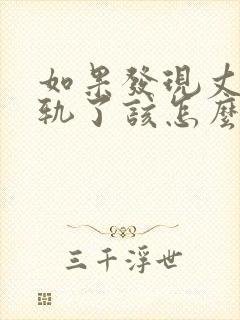 如果發現丈
軌了該怎麼
三千浮世